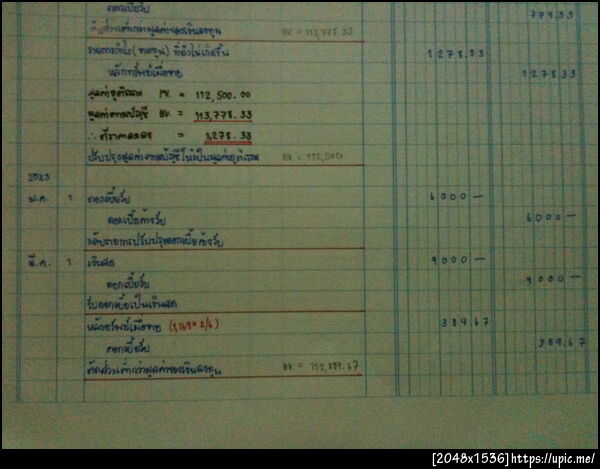 ดอกเบี้ยรับ 779.33
ตัดส่วนต่ำกว่ามูลค่าของเงินลงทุน BV. = 113,778.33
รายการกำไร (ขาดทุน) ที่ยังไม่เกิดขึ้น 1278.33
หลักทรัพย์เผื่อขาย 1278.33
มูลค่ายุติธรรม FV. = 112,500.00
มูลค่าตามบัญชี BV. = 113,778.33
∴ ตีราคาลดลง = 1,278.33
ปรับปรุงมูลค่าตามบัญชีให้เป็นมูลค่ายุติธรรม BV = 112,500
25x3
ม.ค. 1 ดอกเบี้ยรับ 6000 —
ดอกเบี้ยค้างรับ 6000 —
กลับรายการปรับปรุงดอกเบี้ยค้างรับ
มี.ค. 1 เงินสด 9000 —
ดอกเบี้ยรับ 9000 —
รับดอกเบี้ยเป็นเงินสด
หลักทรัพย์เผื่อขาย (1,169 x 2/6) 389.67
ดอกเบี้ยรับ 389.67
ตัดส่วนต่ำกว่ามูลค่าของเงินลงทุน BV. = 112,889.67
[2048x1536]https://upic.me/